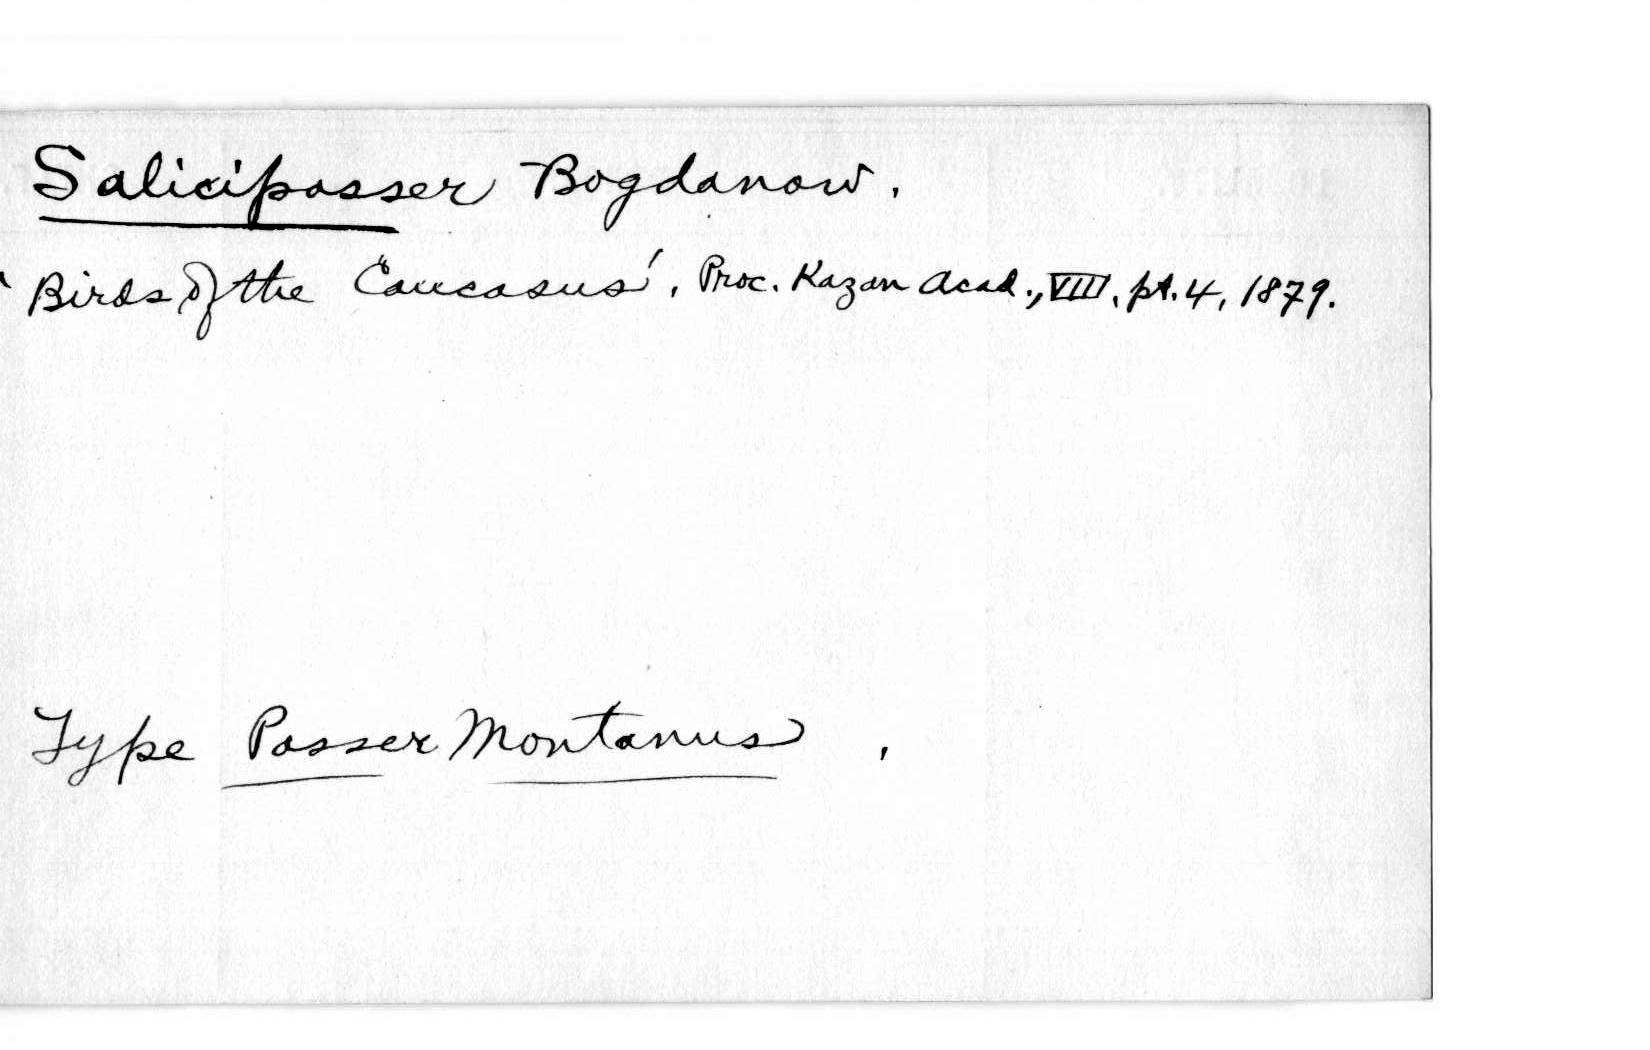 Salicipasser Bogdanow.
'Birds of the Caucasus', Proc. Kazan Acad., VIII, pt. 4, 1879.
Type Passer Montanus.